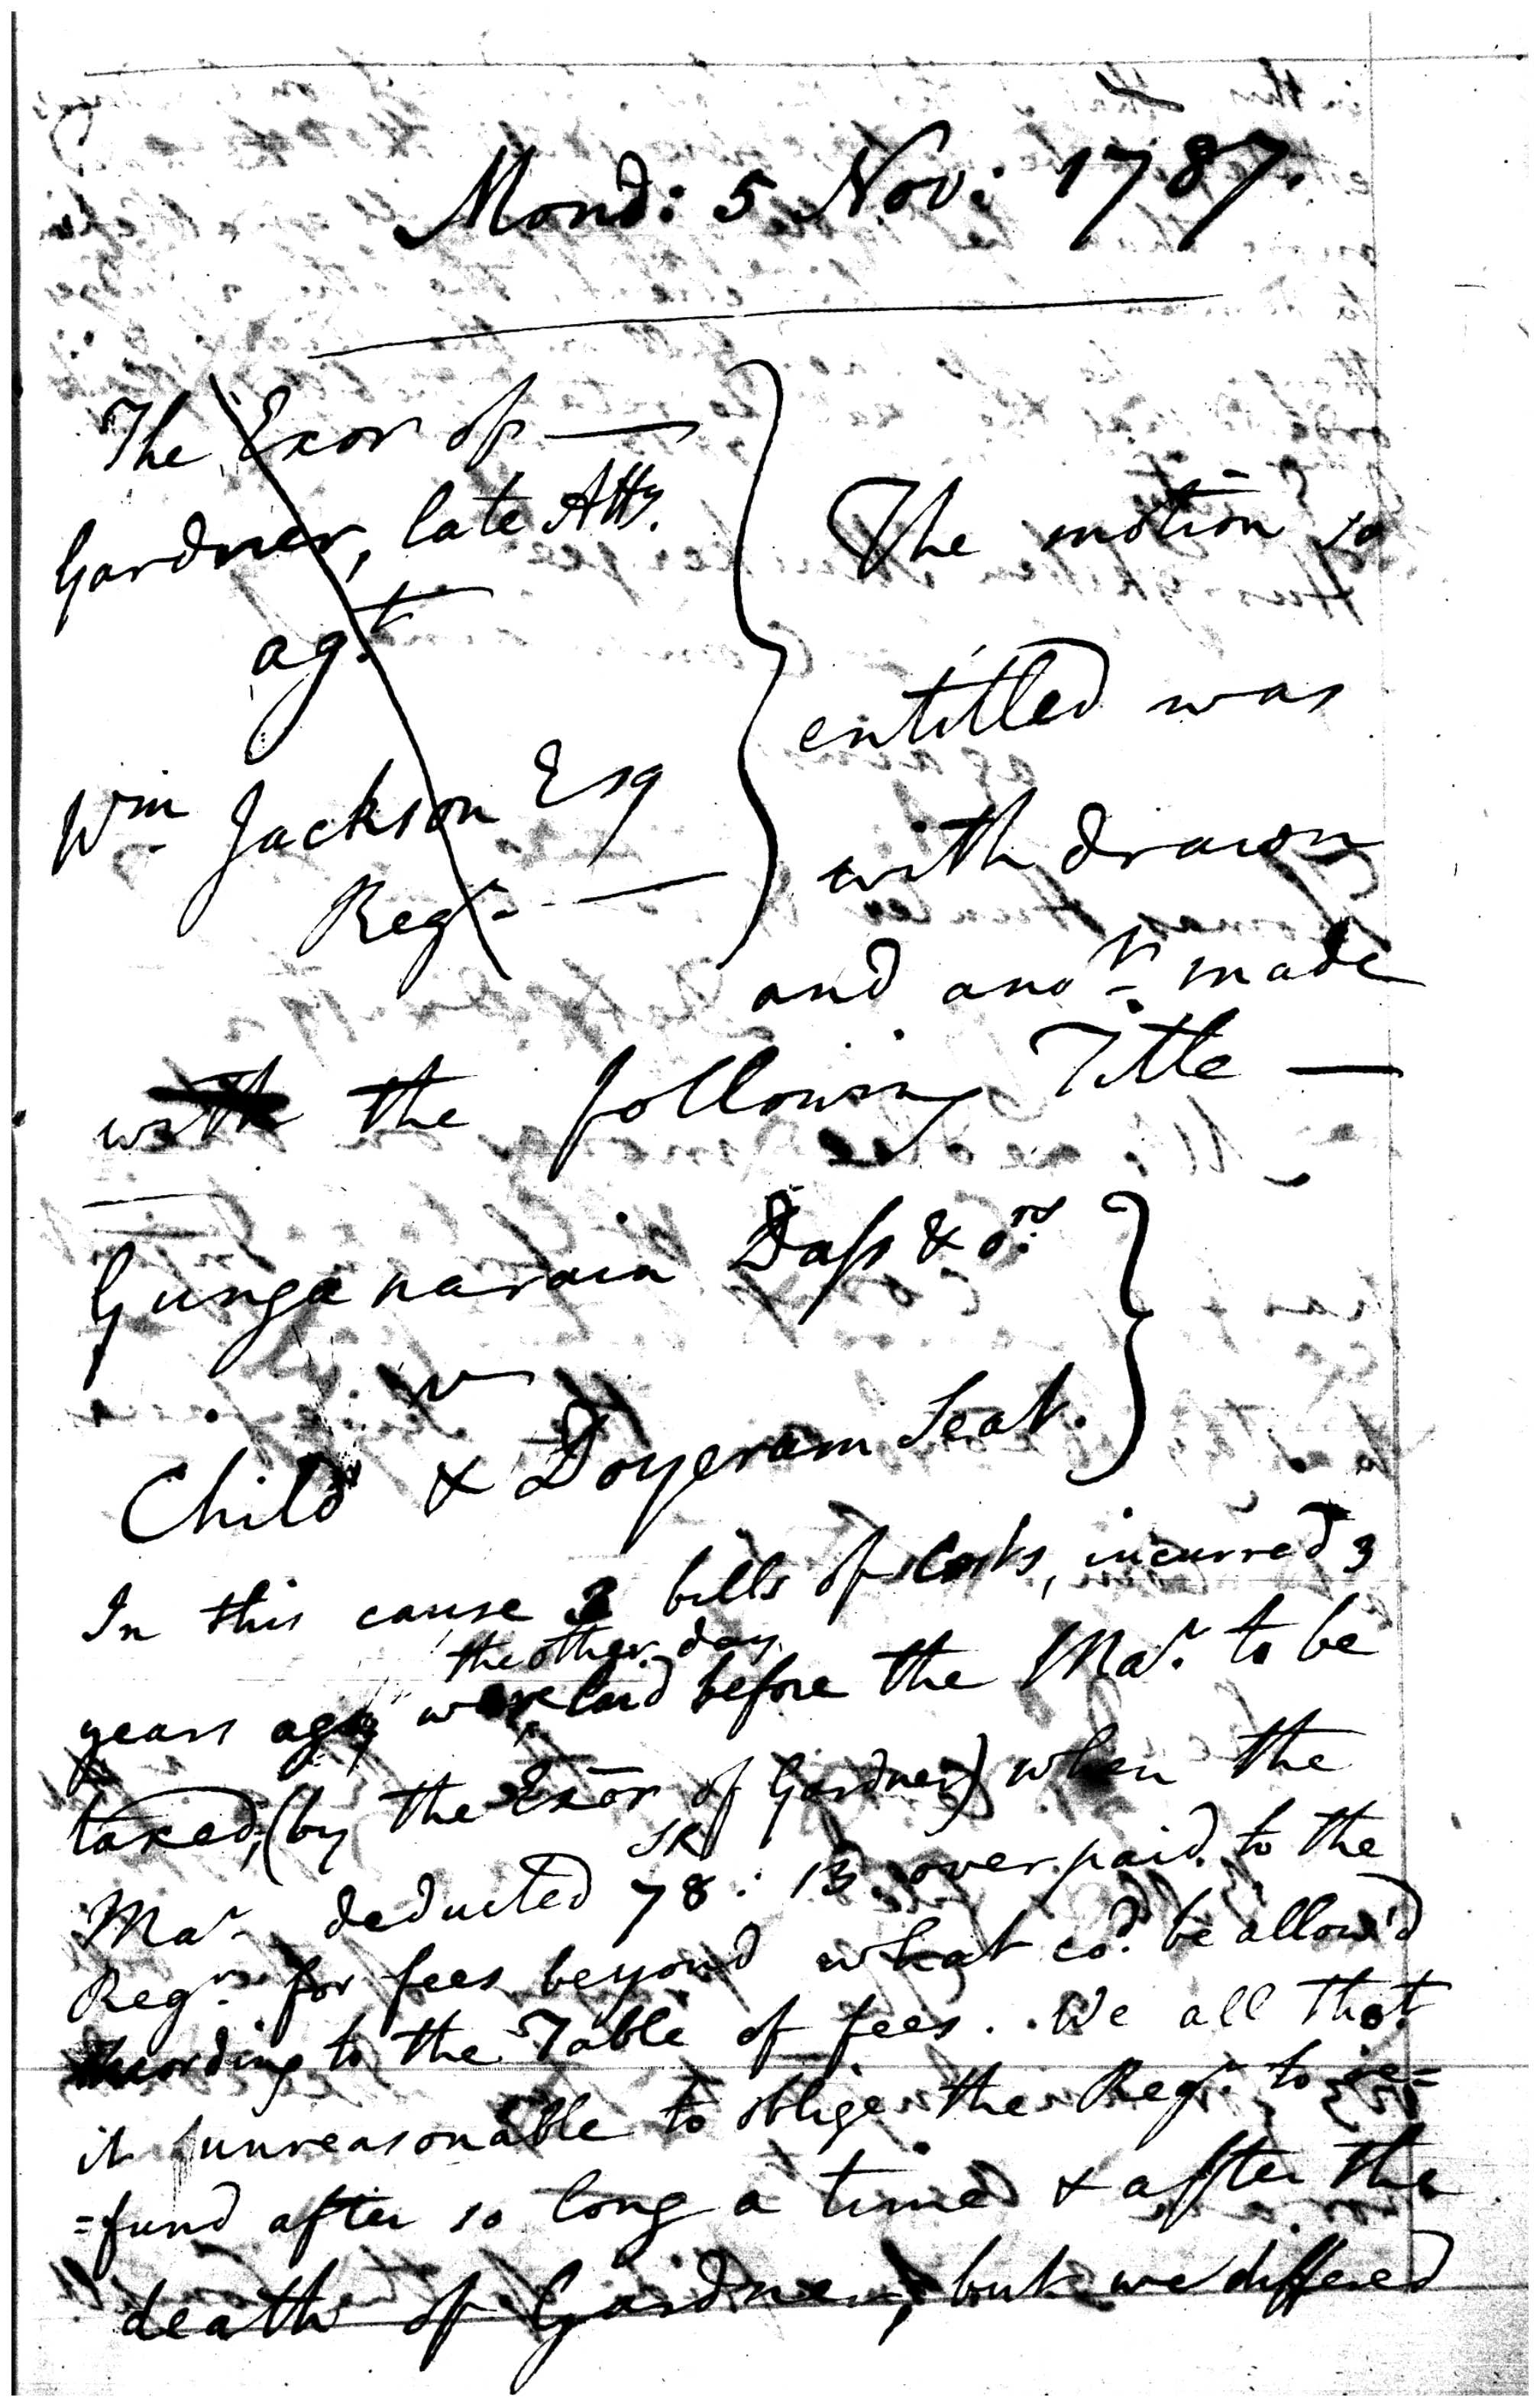 Mond: 5 Nov: 1787.
The Exor of —
Gardner, late Atty.
agt.
Wm Jackson Esq
Regr. —
The motion so
entitled was
withdrawn
and anor. made
with the following Title —
Gunganarain Dass & ors.
v
Child & Doyeram Seat.
In this cause 3 bills of costs, incurred 3
the other day
years ago, were laid before the Mar. to be
taxed, (by the Exor of Gardner) when the
SR
Mar. deducted 78: 13 overpaid to the
Regr. for fees beyond what cod. be allow'd
according to the Table of fees. We all thot
it unreasonable to oblige the Regr. to re=
=fund after so long a time & after the
death of Gardner, but we differed